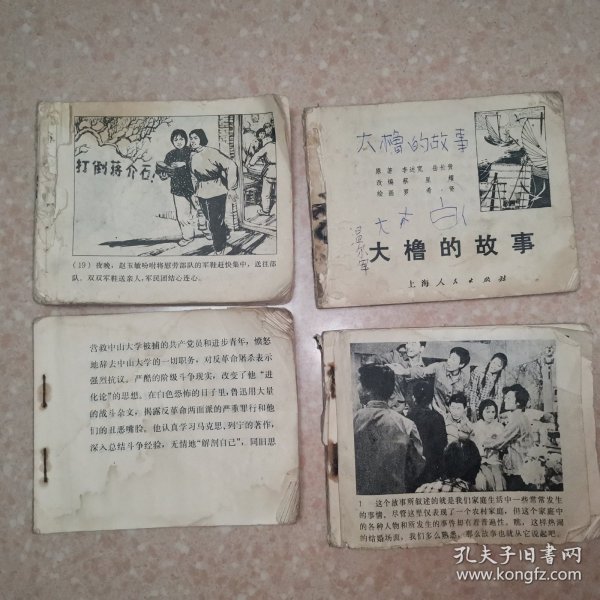 打倒蒋介石!
(19) 夜晚，赵玉敏吩咐将慰劳部队的军鞋赶快集中，送往部
队。双双军鞋送亲人，军民团结心连心。
大橹的故事
原著 李达宽 岳长贵
绘画 罗希贤
大橹的故事
上海人民出版社
营救中山大学被捕的共产党员和进步青年，愤怒
地辞去中山大学的一切职务，对反革命屠杀表示
强烈抗议。严酷的阶级斗争现实，改变了他“进
化论”的思想。在白色恐怖的日子里，鲁迅用大量
的战斗杂文，揭露反革命两面派的严重罪行和他
们的丑恶嘴脸。他认真学习马克思、列宁的著作，
深入总结斗争经验，无情地“解剖自己”，同旧思
1 这个故事所叙述的就是我们家庭生活中一些常常发生
的事情。尽管这里仅表现了一个农村家庭，但这个家庭中
的各种人物和所发生的事件却有着普遍性。瞧，这样热闹
的结婚场面，我们多么熟悉，那么故事也就从它说起吧。
孔夫子旧书网
www.kongfz.com